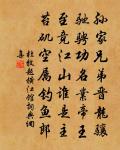 孙家兄弟晋龙骧
驰骋功名业帝王
至竟江山谁是主
苔矶空属钓鱼郎
杜牧题横江馆词典网